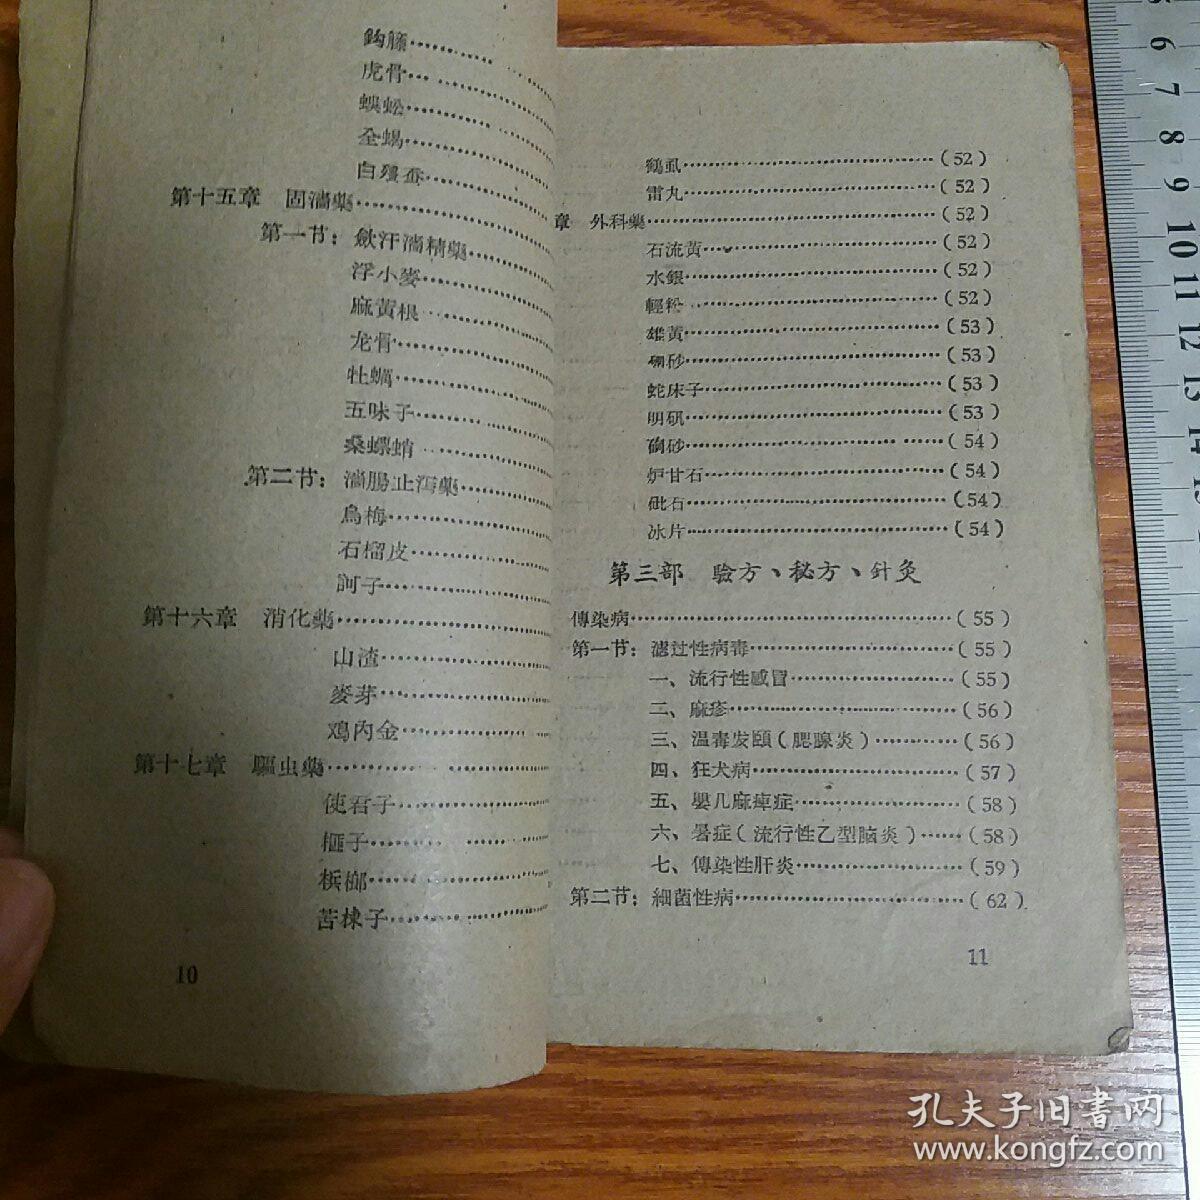 鈎藤
虎骨
蜈蚣
全蝎
白殭蚕
第十五章 固濇藥
第一节：斂汗濇精藥
浮小麥
麻黃根
龙骨
牡蠣
五味子
桑螵蛸
第二节：濇腸止泻藥
烏梅
石榴皮
訶子
第十六章 消化藥
山渣
麥芽
鸡內金
第十七章 驅虫藥
使君子
榧子
梹榔
苦楝子
10
鶴虱(52)
雷丸(52)
章 外科藥(52)
石流黃(52)
水銀(52)
輕粉(52)
雄黃(53)
硼砂(53)
蛇床子(53)
明矾(53)
砂(54)
炉甘石(54)
砒石(54)
冰片(54)
第三部 驗方、秘方、針灸
傳染病(55)
第一节：濾过性病毒(55)
一、流行性感冒(55)
二、麻疹(56)
三、温毒发頤(腮腺炎)(56)
四、狂犬病(57)
五、嬰儿麻痺症(58)
六、暑症(流行性乙型脑炎)(58)
七、傳染性肝炎(59)
第二节：細菌性病(62)
11
6
7
8
9
10
11
12
13
14
孔夫子旧书网
www.kongfz.com